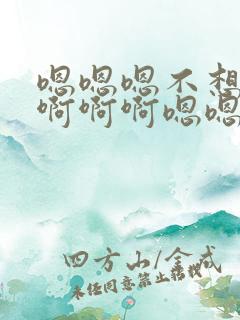 嗯嗯嗯不想
啊啊啊嗯嗯
四方山/全戒
未经同意禁止转载